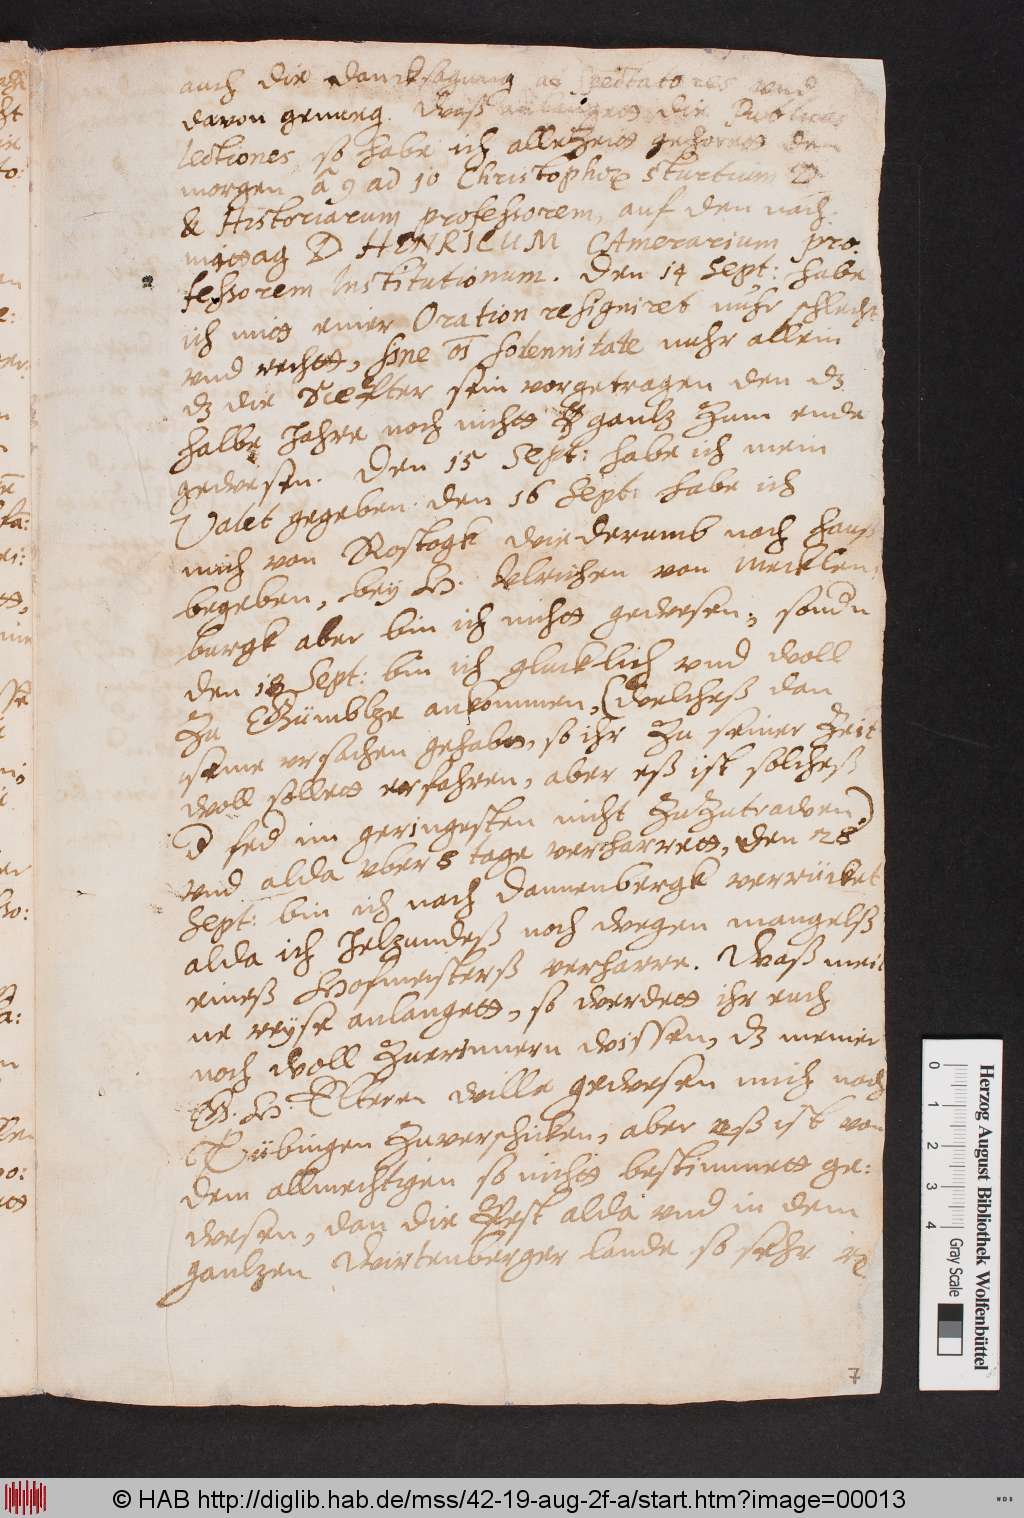 auch die dancksagung ad spectatores vnd
davon genueg. Waß anlanget die Publicas
lectiones, so habe ich allezeit gehoret den
morgen â 9 ad 10 Christophor Sturtium D
& Historiarum professorem, auf den nach:
mittag D HENRICUM CAmerarium pro:
fessorem Institutionum. Den 14 Sept: habe
ich mitt einer Oration resigniret nuhr schlecht
vnd rechtt, sine solennitate nuhr allein
dz die Scepter sein vorgetragen den dz
halbe Jahre noch nichtt gantz zum ende
gewesen. Den 15 Sept: habe ich mein
Valet gegeben. den 16 Sept: habe ich
mich von Rostogk wiederumb nach hauß
begeben, bey H. Vlrichen von Mecklen:
burgk aber bin ich nichtt gewesen, sond'n
den 18 Sept: bin ich glucklich vnd woll
zu ankommen, (welcheß dan
seine vrsachen gehabt, so ihr zu seiner Zeit
woll sollett erfahren, aber eß ist solcheß
D fed im geringesten nicht zuzutrawen)
vnd alda vber 8 tage verharrett, den 28
Sept: bin ich nach Dannenbergk verrücket
alda ich Jetzundeß noch wegen mangelß
eineß Hofmeisterß verharre. Waß mei
ne reyse anlangett, so werdett ihr euch
noch woll zuerinnern wissen, dz meiner
G. H. Elteren wille gewesen mich nach
Tübingen zuverschicken, aber eß ist von
dem allmechtigen so nichtt bestimmett ge:
wesen, dan die Pest alda vnd in dem
gantzen Wirtenberger lande so sehr re
7
Herzog August Bibliothek Wolfenbüttel
0 1 2 3 4 Gray Scale
© HAB http://diglib.hab.de/mss/42-19-aug-2f-a/start.htm?image=00013